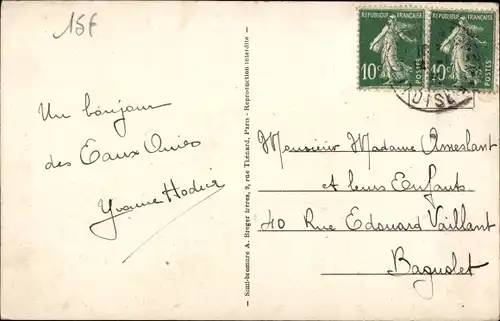 15f
Un bonjour
des Eaux Vives
Yvonne
Semi-bromure A. Breger frères, 9, rue Thénard, Paris - Reproduction interdite -
REPUBLIQUE FRANÇAISE
10c POSTES
REPUBLIQUE FRANÇAISE
10c POSTES
Monsieur Madame Ameslant
et leurs Enfants
40 Rue Edouard Vaillant
Bagnolet